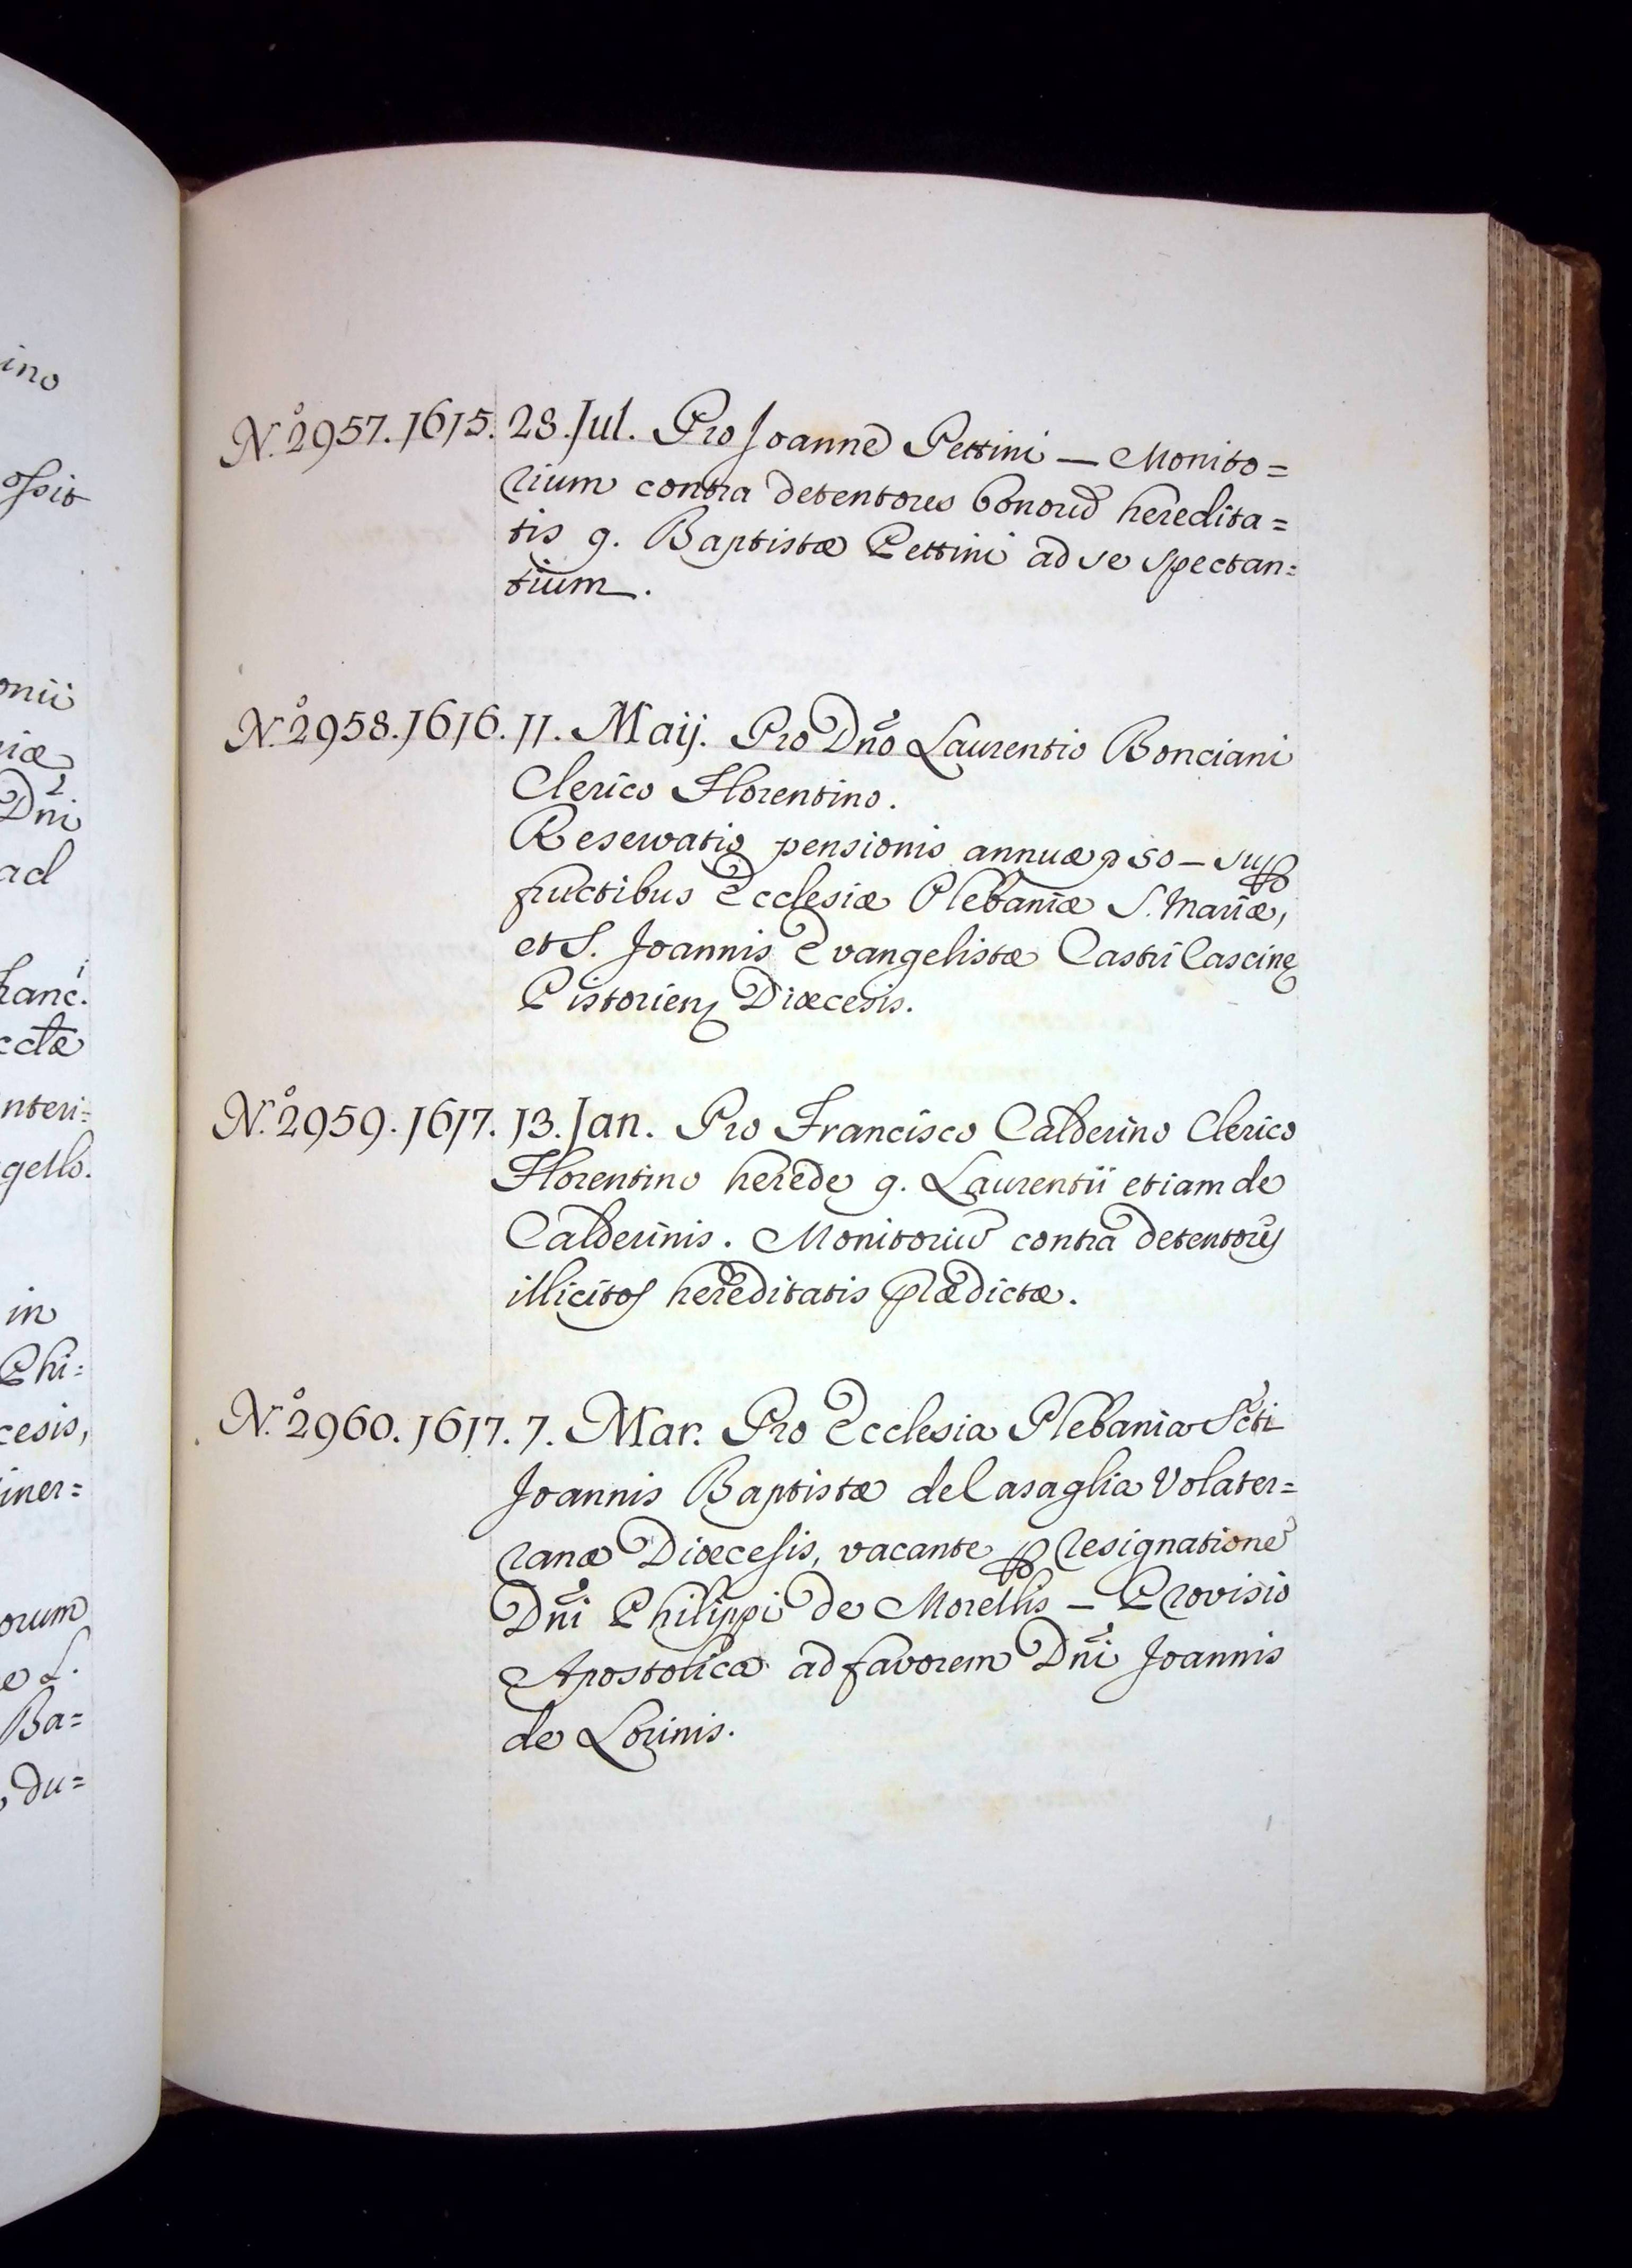 ino
ossit
onii
iæ
Dñi
ad
hanc.
ctæ
nteri=
gello.
in
Phi=
cesis,
iner=
orum
e S.
Ba=
du=
N.º 2957. 1615. 28. Jul. Pro Joanne Pettini — Monito=
rium contra detentores bonorũ heredita=
tis q. Baptistæ Pettini ad se spectan=
tium.
N.º 2958. 1616. 11. Maij. Pro Dño Laurentio Bonciani
Clerico Florentino.
Reservatio pensionis annuæ 50 —
fructibus Ecclesiæ Plebaniæ S. Mariæ,
et S. Joannis Evangelistæ Castri Cascinę
Pistorien Diœcesis.
N.º 2959. 1617. 13. Jan. Pro Francisco Calderino Clerico
Florentino herede q. Laurentii etiam de
Calderinis. Monitoriũ contra detentores
illicitos hereditatis prædictæ.
N.º 2960. 1617. 7. Mar. Pro Ecclesia Plebania Scti
Joannis Baptistæ de Casaglia Volater=
ranæ Diœcesis, vacante resignatione
Dñi Philippi de Morellis — Provisio
Apostolica ad favorem Dñi Joannis
de Lorinis.